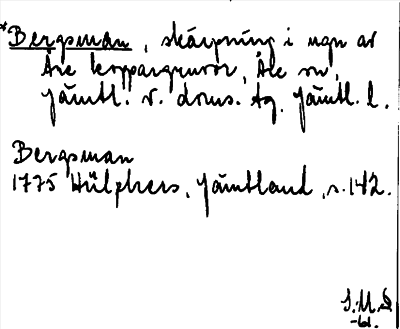 *Bergsman, skärpning i ngn av
Åre koppargruvor, Åre sn,
Jämtl. v. doms. tg. Jämtl. l.
Bergsman
1775 Hülphers, Jämtland, s. 142.
S.M.
-61.